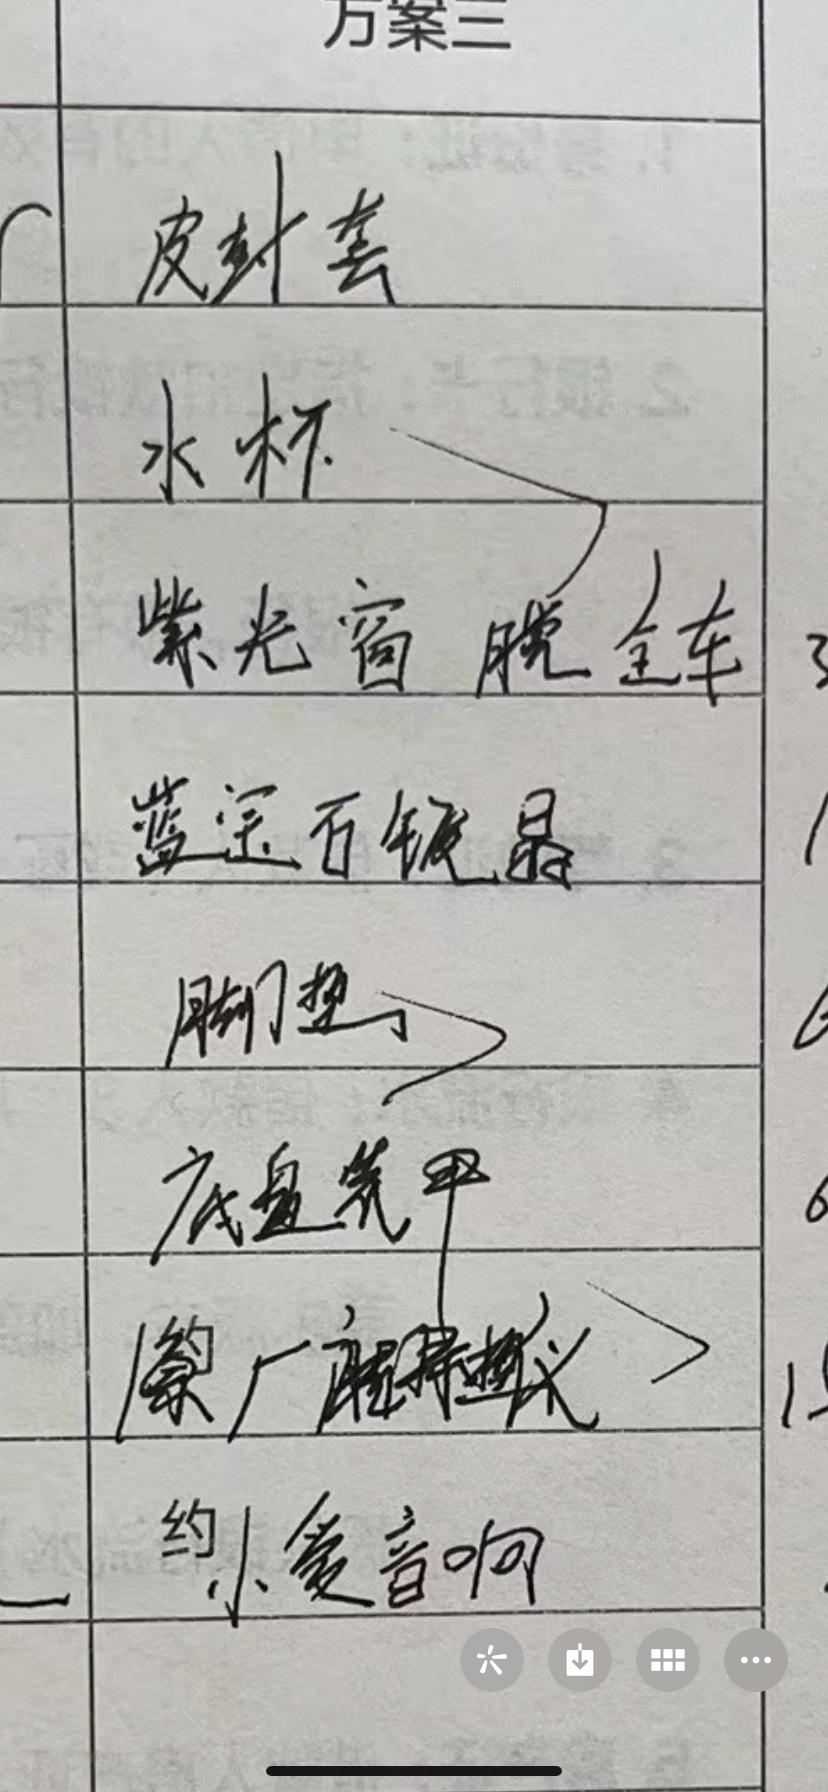 方案三
皮封套
水杯
紫光窗 膜 全车
蓝宝石镀晶
脚垫
底盘装甲
原厂
小爱音响